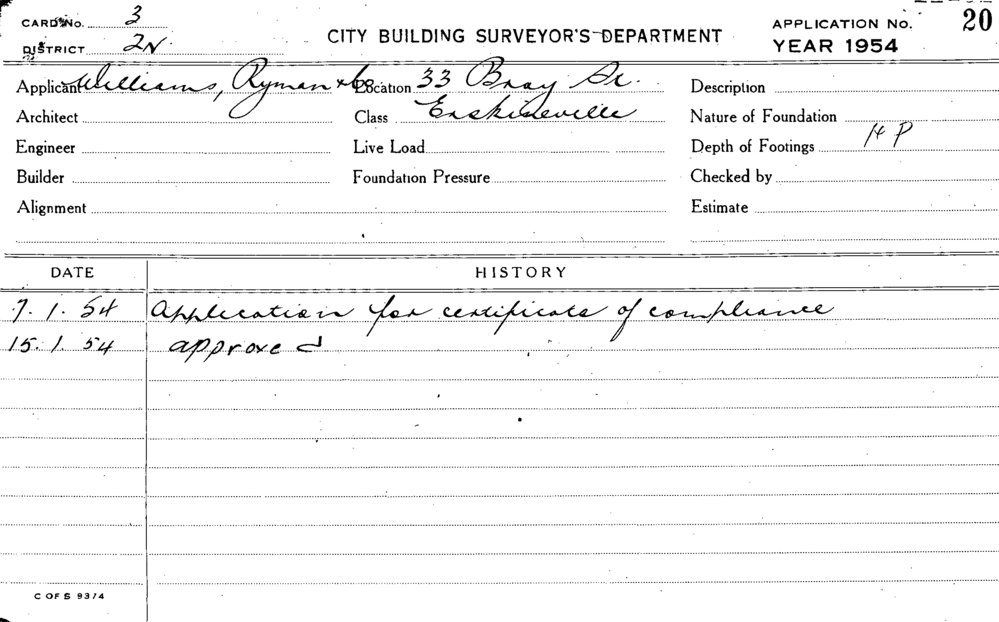 CARD No. 3
DISTRICT 2N.
CITY BUILDING SURVEYOR'S DEPARTMENT
APPLICATION No. 20
YEAR 1954
Applicant Williams, Ryman & Co Location 33 Bray St. Description
Architect Class Erskineville Nature of Foundation
Engineer Live Load Depth of Footings HP
Builder Foundation Pressure Checked by
Alignment Estimate
DATE HISTORY
7. 1. 54 Application for certificate of compliance
15. 1. 54 approved
C OF S 93/4